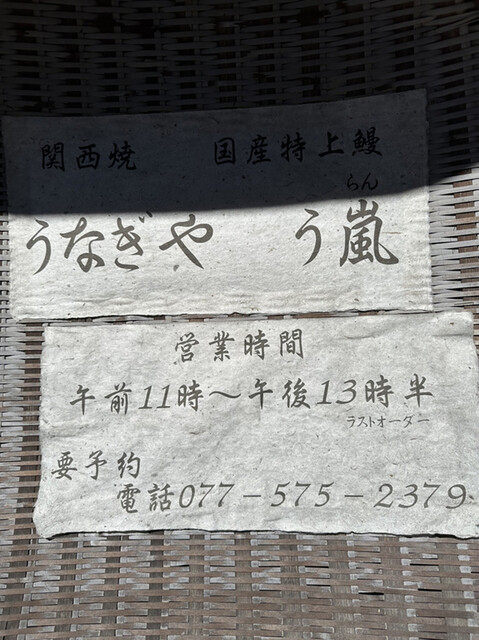 関西焼　国産特上鰻
らん
うなぎや　う嵐
営業時間
午前11時～午後13時半
ラストオーダー
要予約
電話077-575-2379